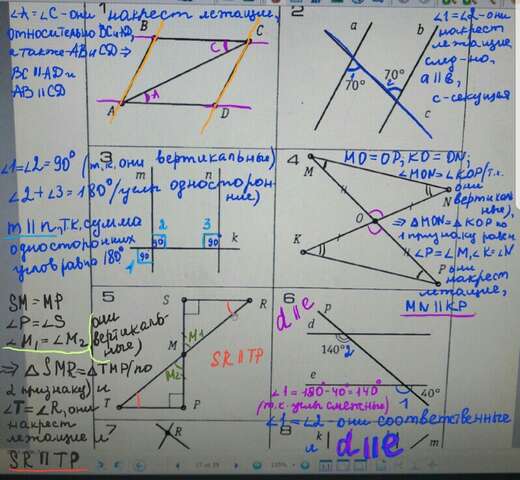 ∠A = ∠C - они накрест лежащие,
относительно BC и AD,
а также AB и CD ⇒
BC ∥ AD и
AB ∥ CD
1
B
C
C
A
A
D
2
a
b
70°
70°
1
2
c
∠1=∠2 - они
накрест
лежащие
след-но,
a∥b,
c-секущая
3
∠1=∠2=90° (т.к. они вертикальные)
∠2+∠3=180° / углы односторон-
ние)
m ∥ n, т.к. сумма
односторонних
углов равна 180°
m
n
2
3
90°
90°
k
1
90°
4
MO=OP; KO=ON;
∠MON=∠KOP/т.к.
они
вертикаль-
ные),
⇒ ∆MON=∆KOP по
1 признаку равен
∠P=∠M, ∠K=∠N
они
накрест
лежащие,
MN ∥ KP
M
N
O
K
P
5
SM = MP
∠P = ∠S
∠M₁ = ∠M₂
они
вертикаль-
ные)
⇒ ∆SMR = ∆TMP/по
2 признаку) и
∠T = ∠R, они
накрест
лежащие и
SR ∥ TP
S
R
M
M1
M2
T
P
SR ∥ TP
6
d ∥ e
p
d
140°
2
e
40°
1
∠1=180-40=140°
(т.к. углы смежные)
∠1=∠2 - они соответственные
и d ∥ e
7
R
8
k
m